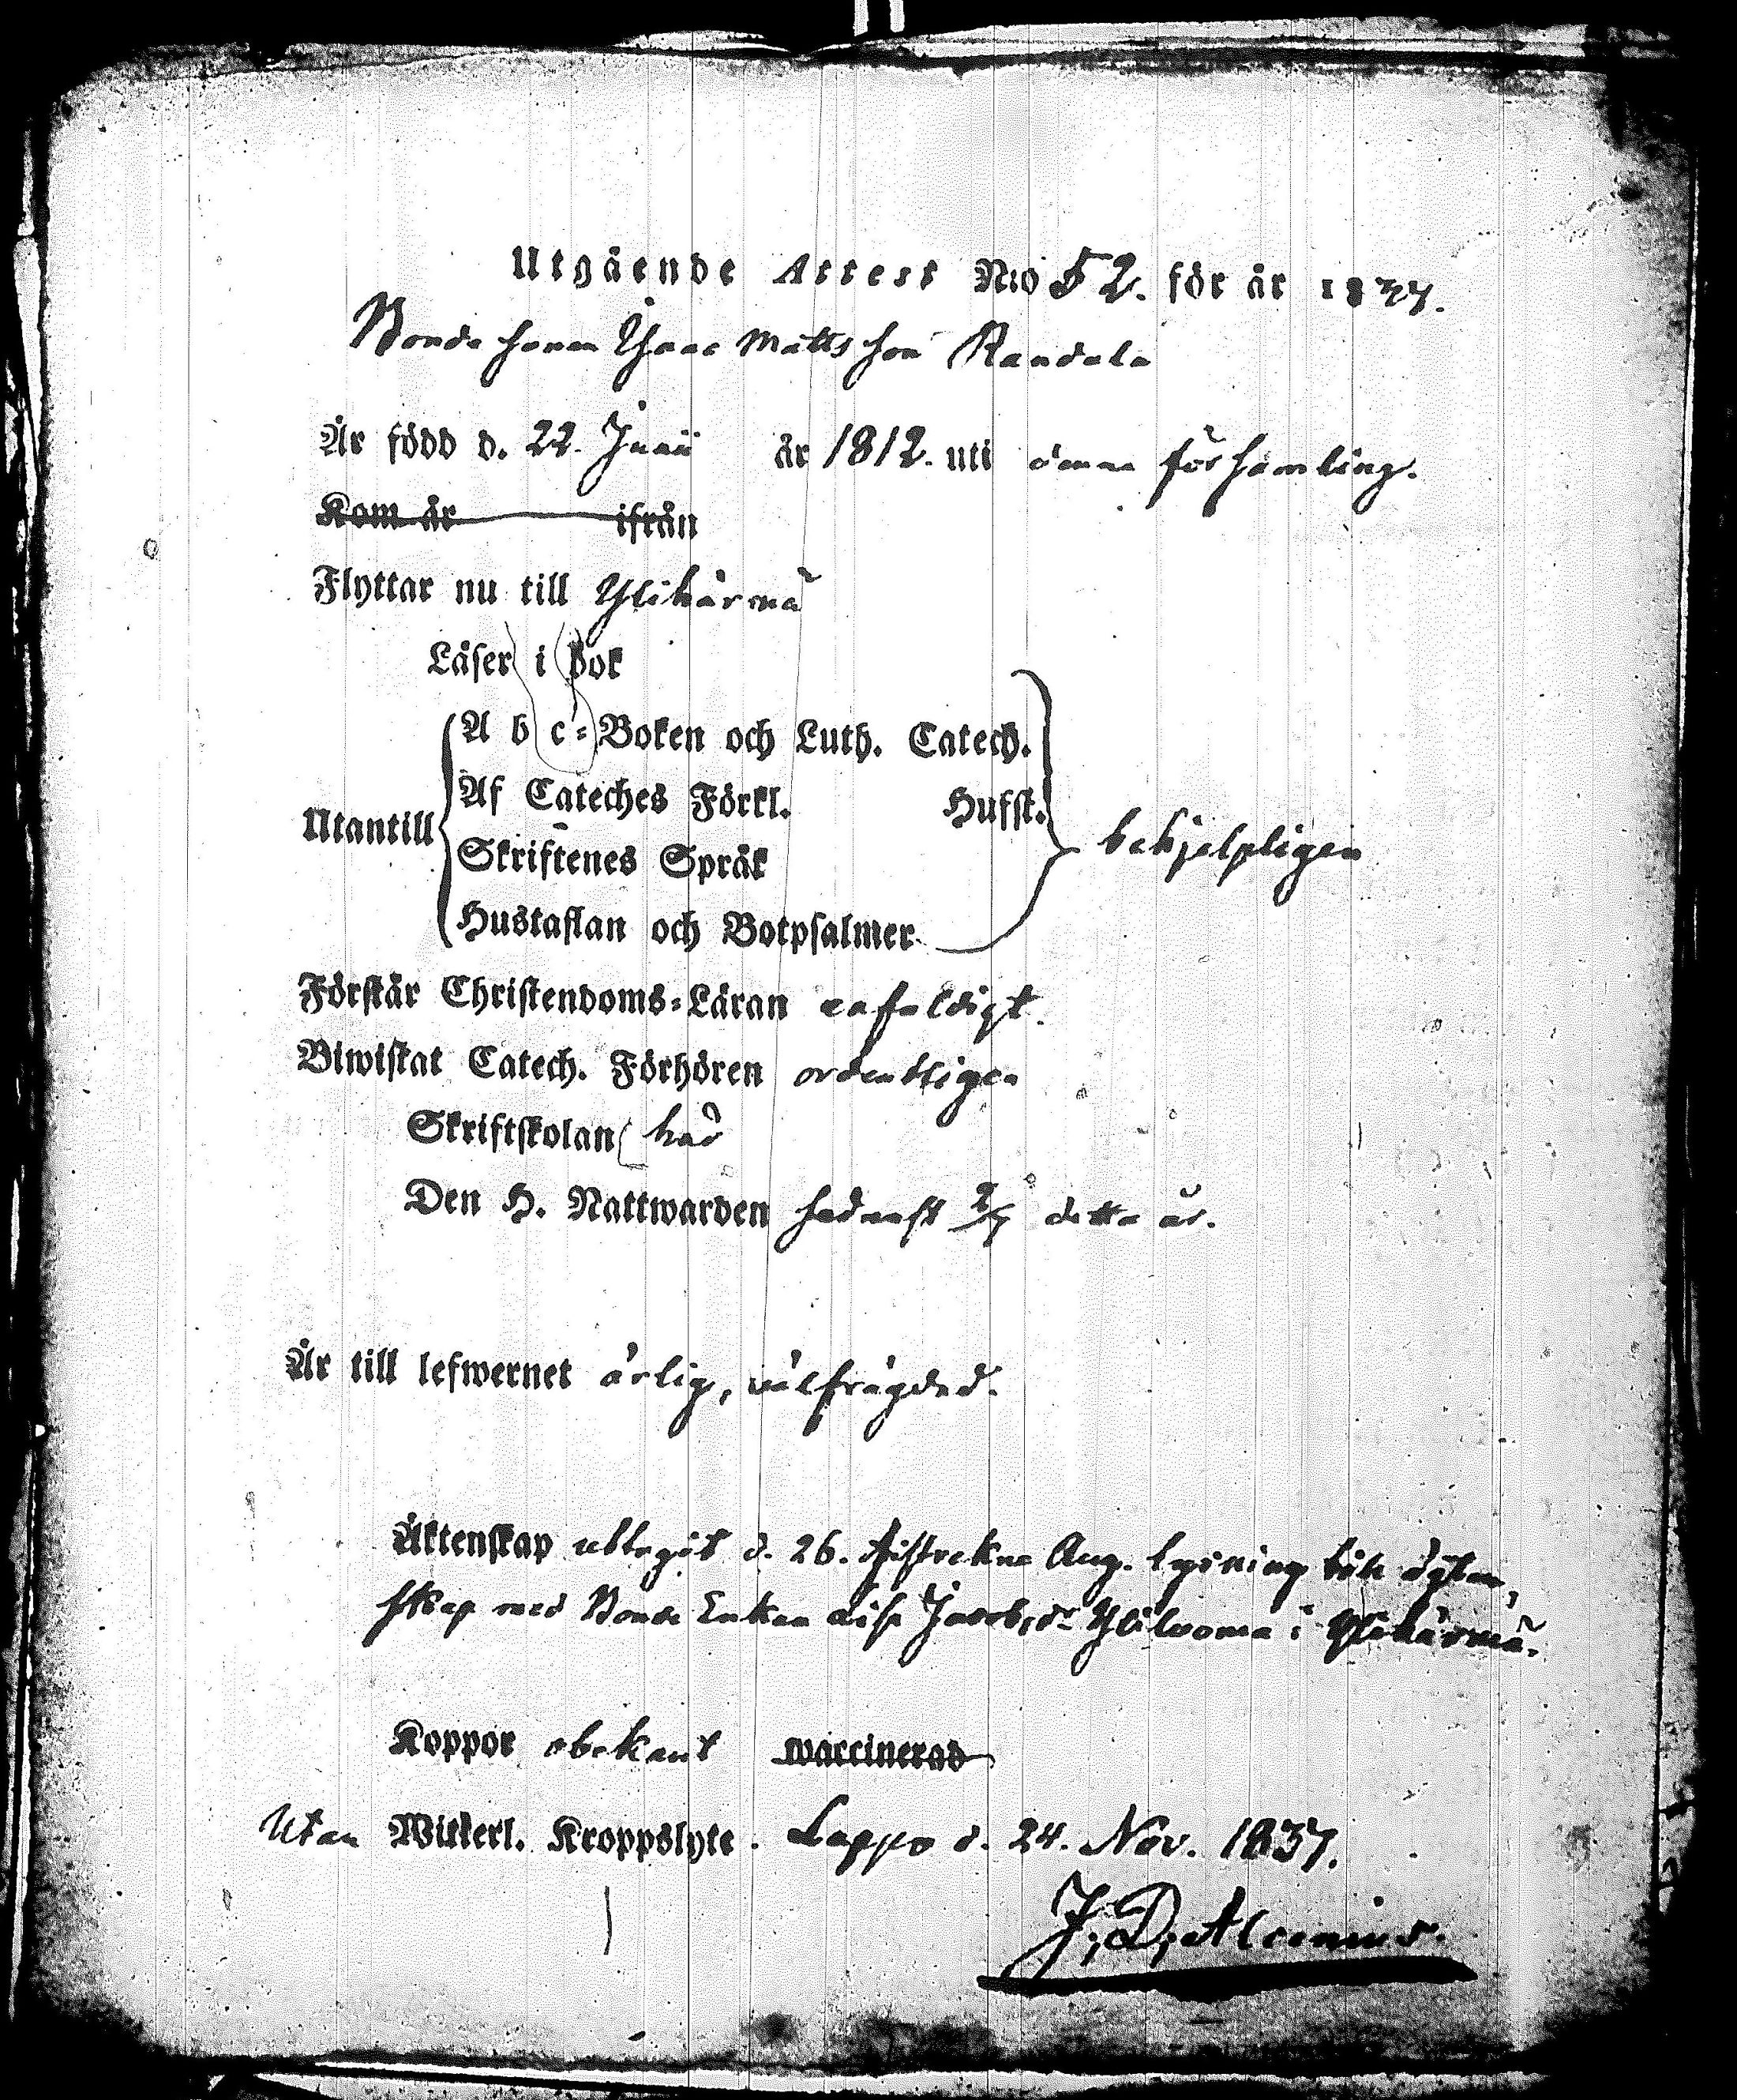 Utgående Attest N:o 52. för år 1837.
Bonde sonen Isaac Matts son Kandala
Är född d. 22. Junii år 1812. uti denna församling.
Kom år ifrån
Flyttar nu till Ylihärmä
Läser i bok
A b c-Boken och Luth. Catech.
Af Cateches Förkl. Husst.
Utantill behjelpligen
Skriftenes Språk
Hustaflan och Botpsalmer
Förstår Christendoms-Läran enfaldigt.
Biwistat Catech. Förhören ordentligen
Skriftskolan här
Den H. Nattwarden sednast detta år.
Är till lefwernet ärlig, välfrägdad.
Äktenskap uttagit d. 26. Aug. lysning till ägten,
skap med Bonde Enkan Lisa Jacobsdr Ylilvoma i Ylihärmä.
Koppor obekant waccinerad
Utan Witterl. Kroppslyte. Lappo d. 24. Nov. 1837.
J. D. Alcenius.